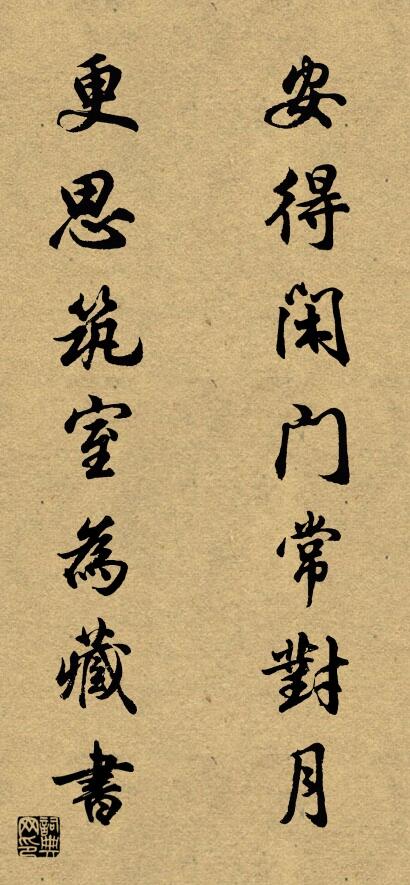 安得闲门常對月
更思筑室為藏書
詞典网印